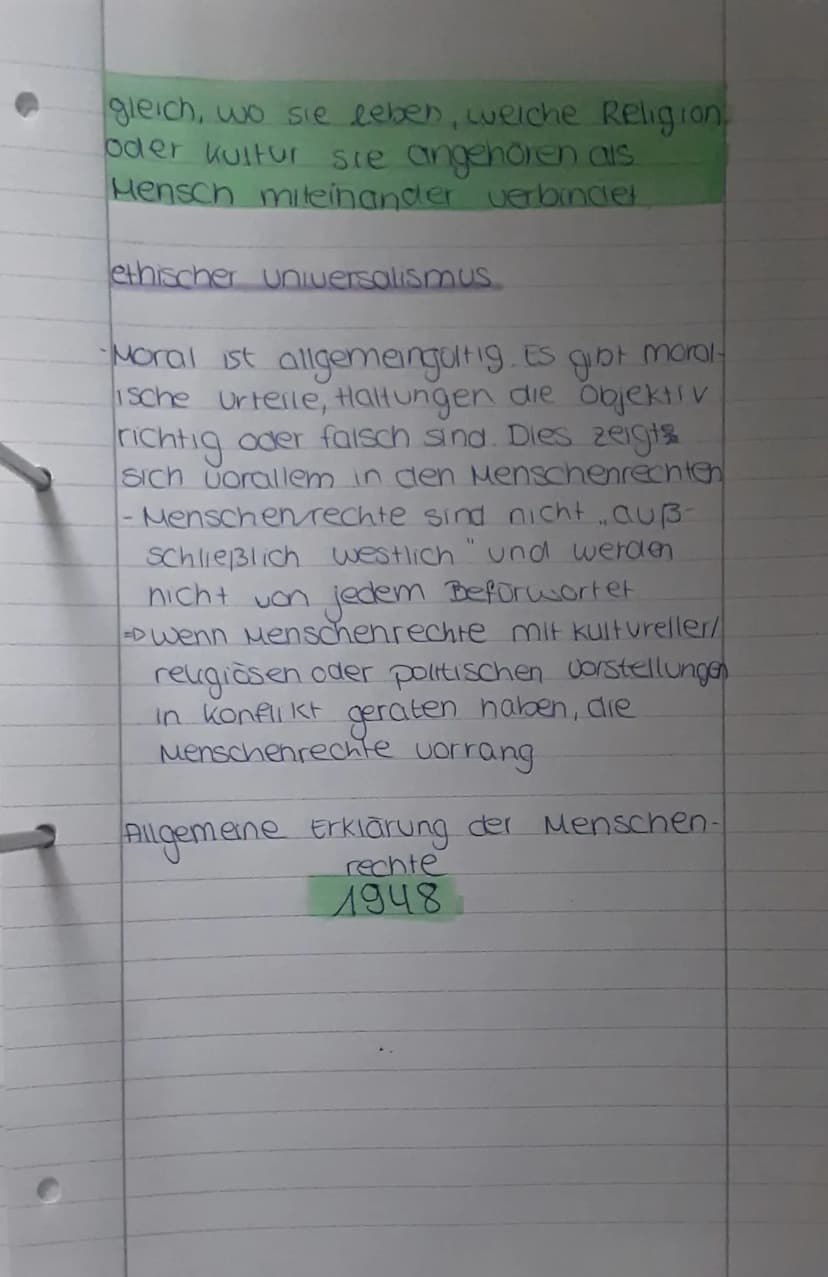 gleich, wo sie leben, welche Religion
oder Kultur sie angehören als
Mensch miteinander verbindet
ethischer Universalismus
-Moral ist allgemeingültig. Es gibt moral-
ische Urteile, Haltungen die Objektiv
richtig oder falsch sind. Dies zeigt
sich vorallem in den Menschenrechten
- Menschenrechte sind nicht „auß-
schließlich westlich" und werden
nicht von jedem Befürwortet
=> Wenn Menschenrechte mit kultureller/
religiösen oder politischen Vorstellungen
in Konflikt geraten haben, die
Menschenrechte vorrang
Allgemeine Erklärung der Menschen-
rechte
1948